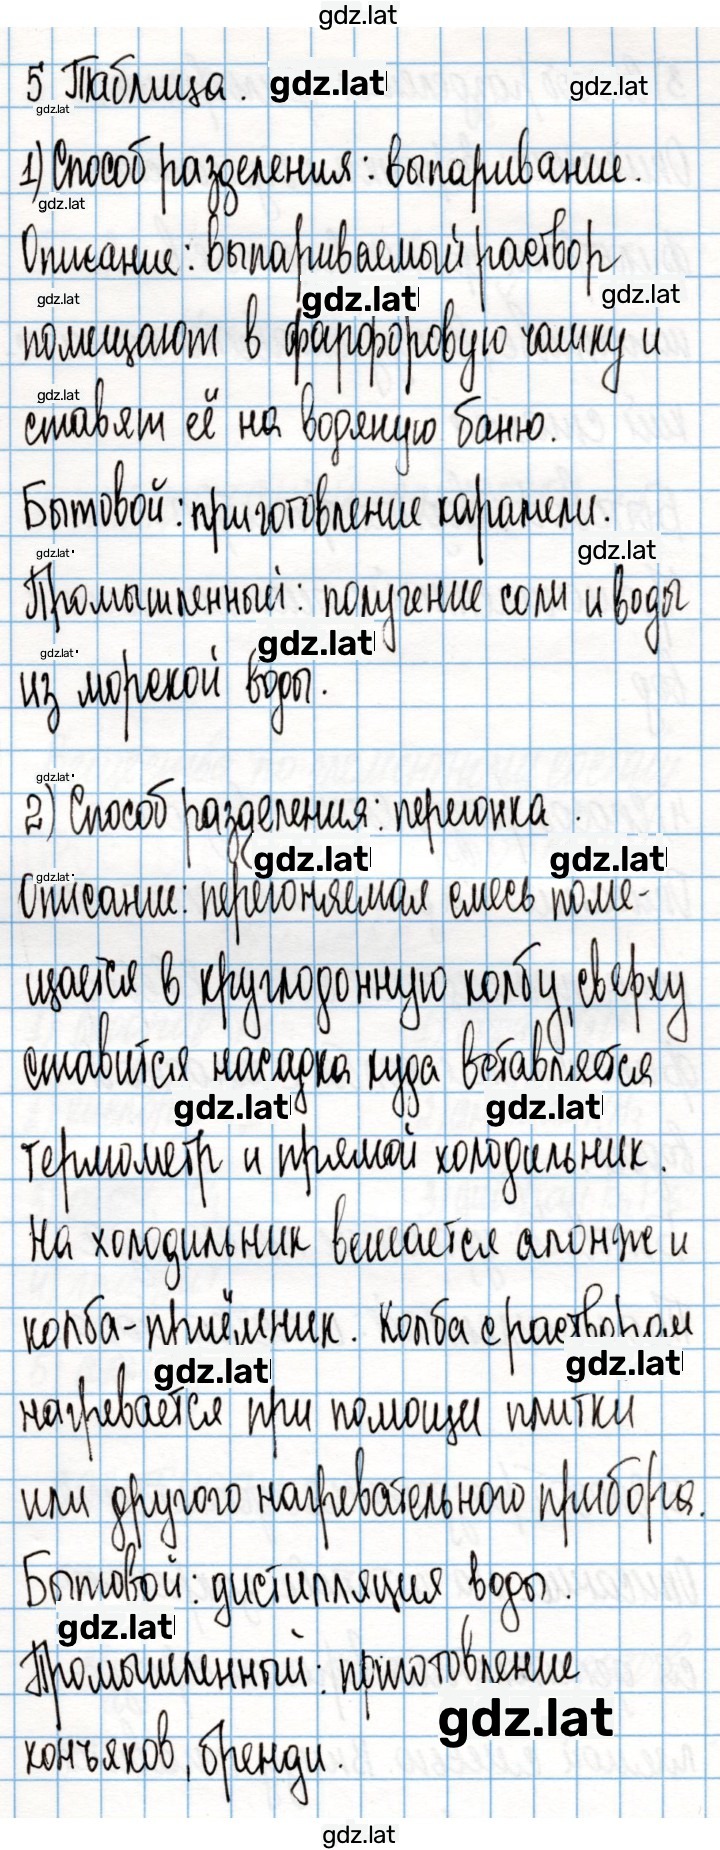 gdz.lat
5 Таблица. gdz.lat gdz.lat
gdz.lat
1) Способ разделения: выпаривание.
gdz.lat
Описание: выпариваемый раствор
gdz.lat gdz.lat gdz.lat
помещают в фарфоровую чашку и
gdz.lat
ставят её на водяную баню.
Бытовой: приготовление карамели.
gdz.lat gdz.lat
Промышленный: получение соли и воды
gdz.lat gdz.lat
из морской воды.
gdz.lat
2) Способ разделения: перегонка.
gdz.lat gdz.lat gdz.lat
Описание: перегоняемая смесь поме-
щается в круглодонную колбу, сверху
ставится насадка куда вставляется
gdz.lat gdz.lat
термометр и прямой холодильник.
На холодильник вешается алонж и
колба-приёмник. Колба с раствором
gdz.lat gdz.lat
нагревается при помощи плитки
или другого нагревательного прибора.
Бытовой: дистилляция воды.
gdz.lat
Промышленный: приготовление
gdz.lat
коньяков, бренди.
gdz.lat